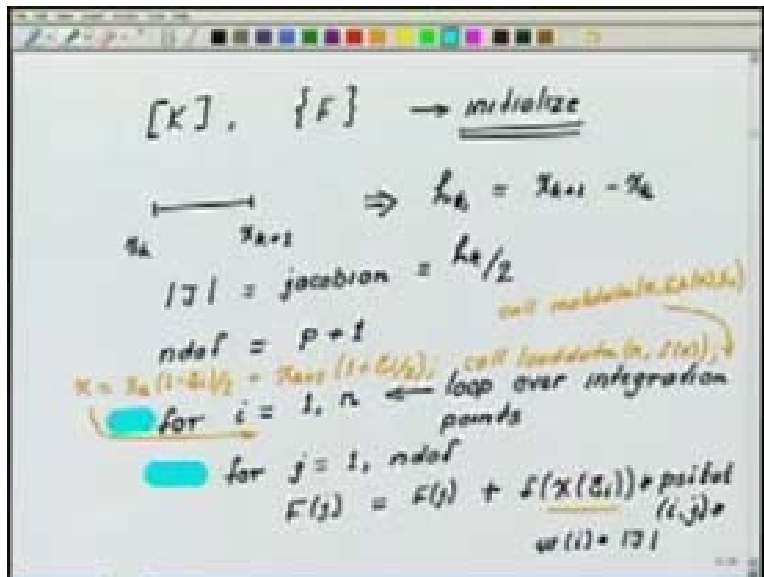 [K], {F} → initialize
x_k x_{k+1} ⇒ h_k = x_{k+1} - x_k
|J| = jacobian = h_k/2
ndof = p + 1
call matdata(
x = x_k (1-ξ_i)/2 + x_{k+1} (1+ξ_i)/2; call loaddata(x, f(x));
for i = 1, n ← loop over integration
points
for j = 1, ndof
F(j) = F(j) + f(x(ξ_i)) *
(i,j) *
w(i) * |J|